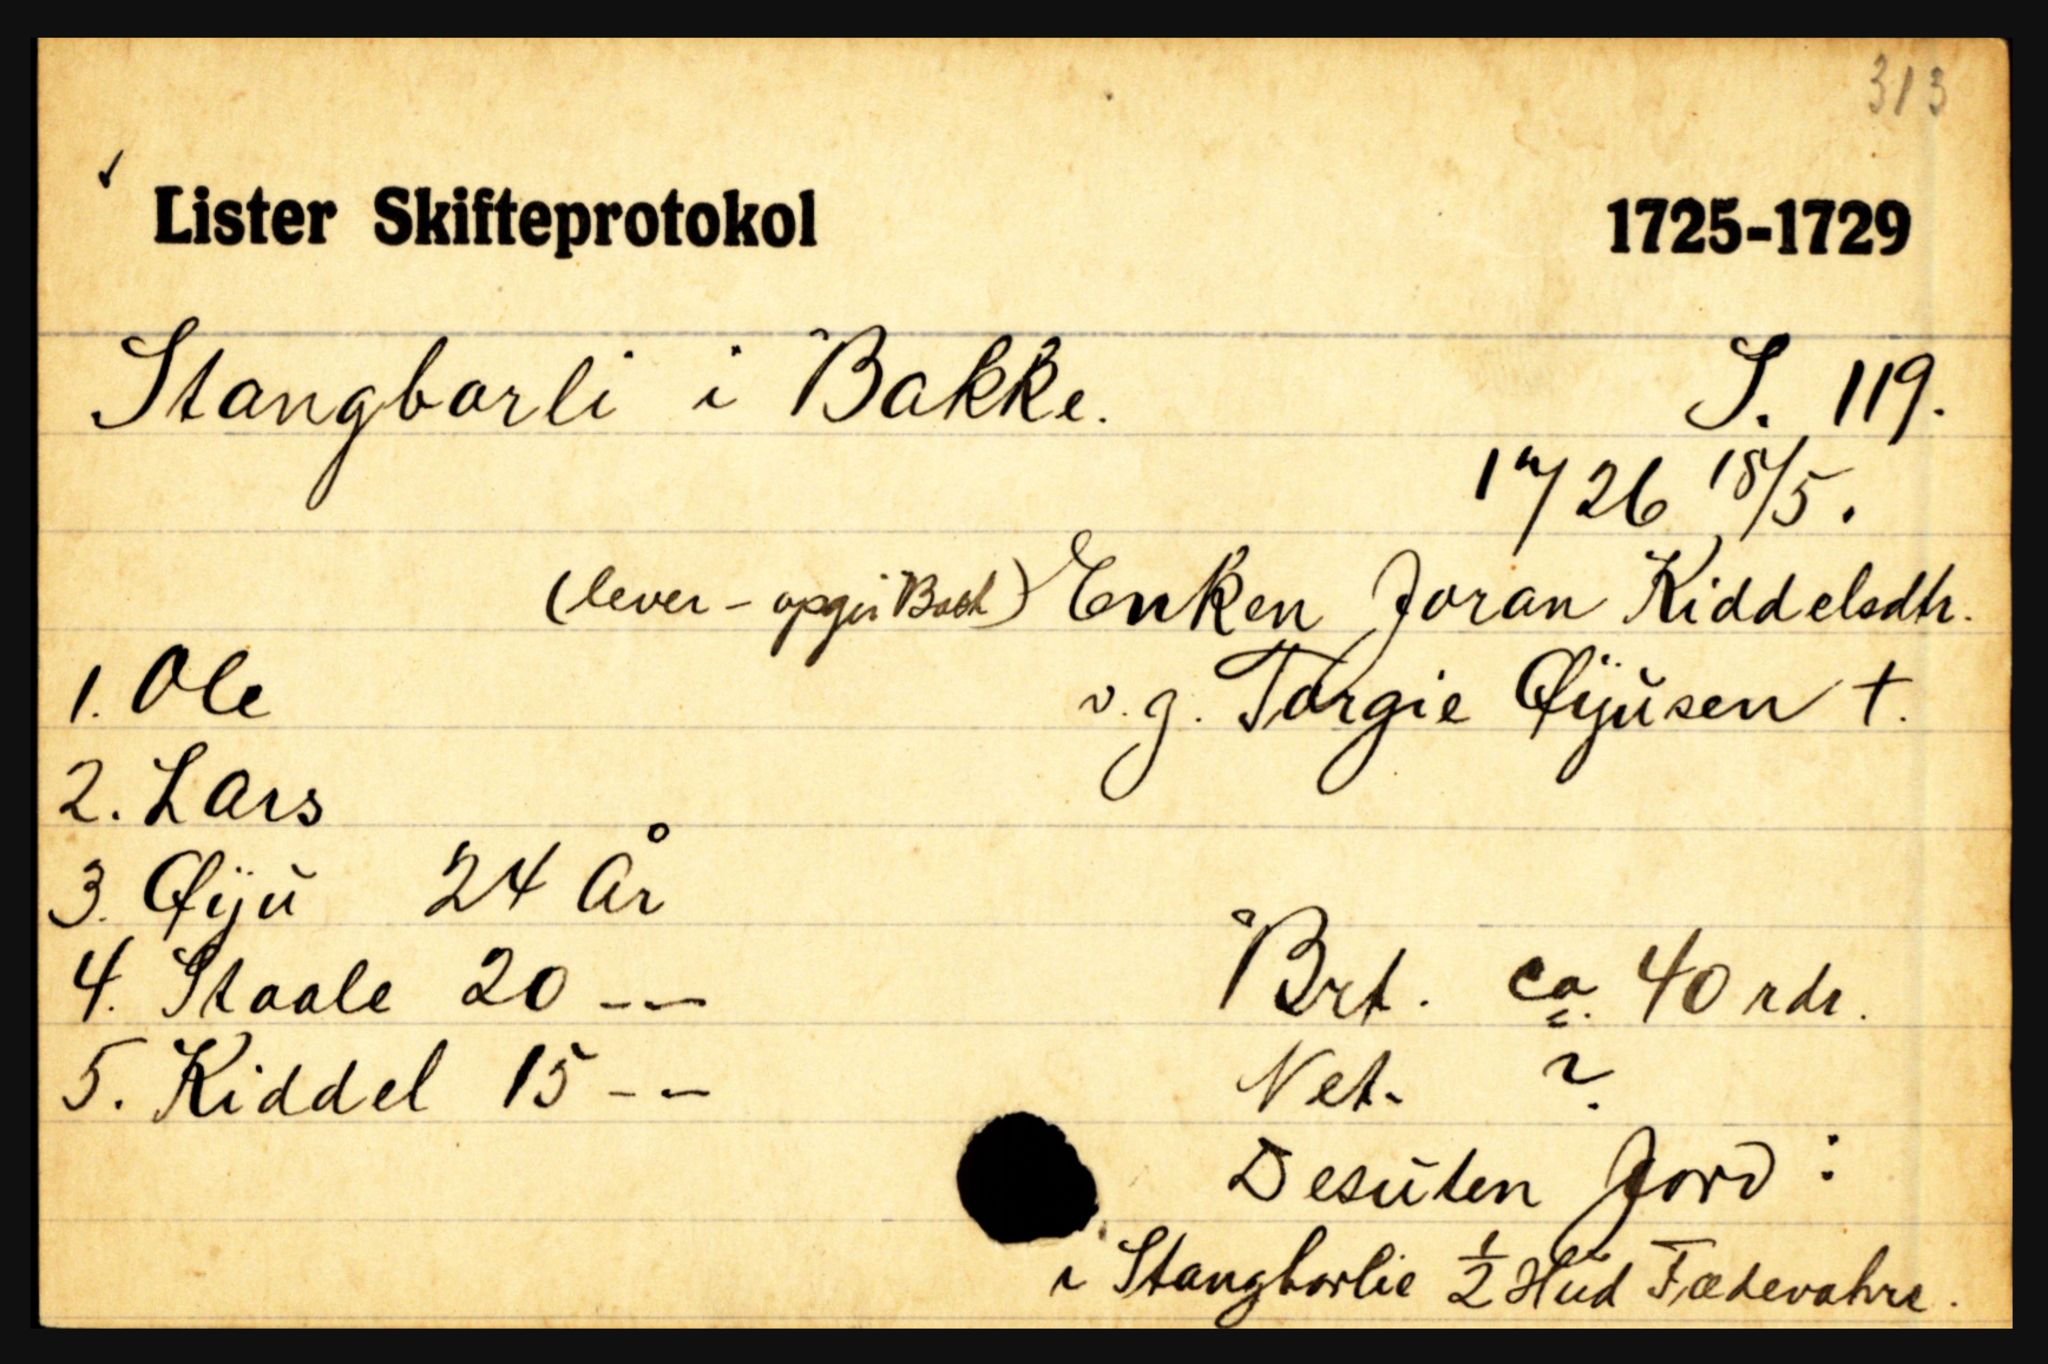 313
Lister Skifteprotokol 1725-1729
Stangborli i Bakke. S. 119.
17/26 18/5.
(lever - opgir Boet) Enken Joran Kiddelsdtr.
1. Ole v. g. Torgie Øijusen †.
2. Lars
3. Øiju 24 år
4. Staale 20 --
Brt. ca. 40 rdr.
5. Kiddel 15 --
Net. ?
Desuten Jord:
i Stangborlie ½ Hud Fædevahre.